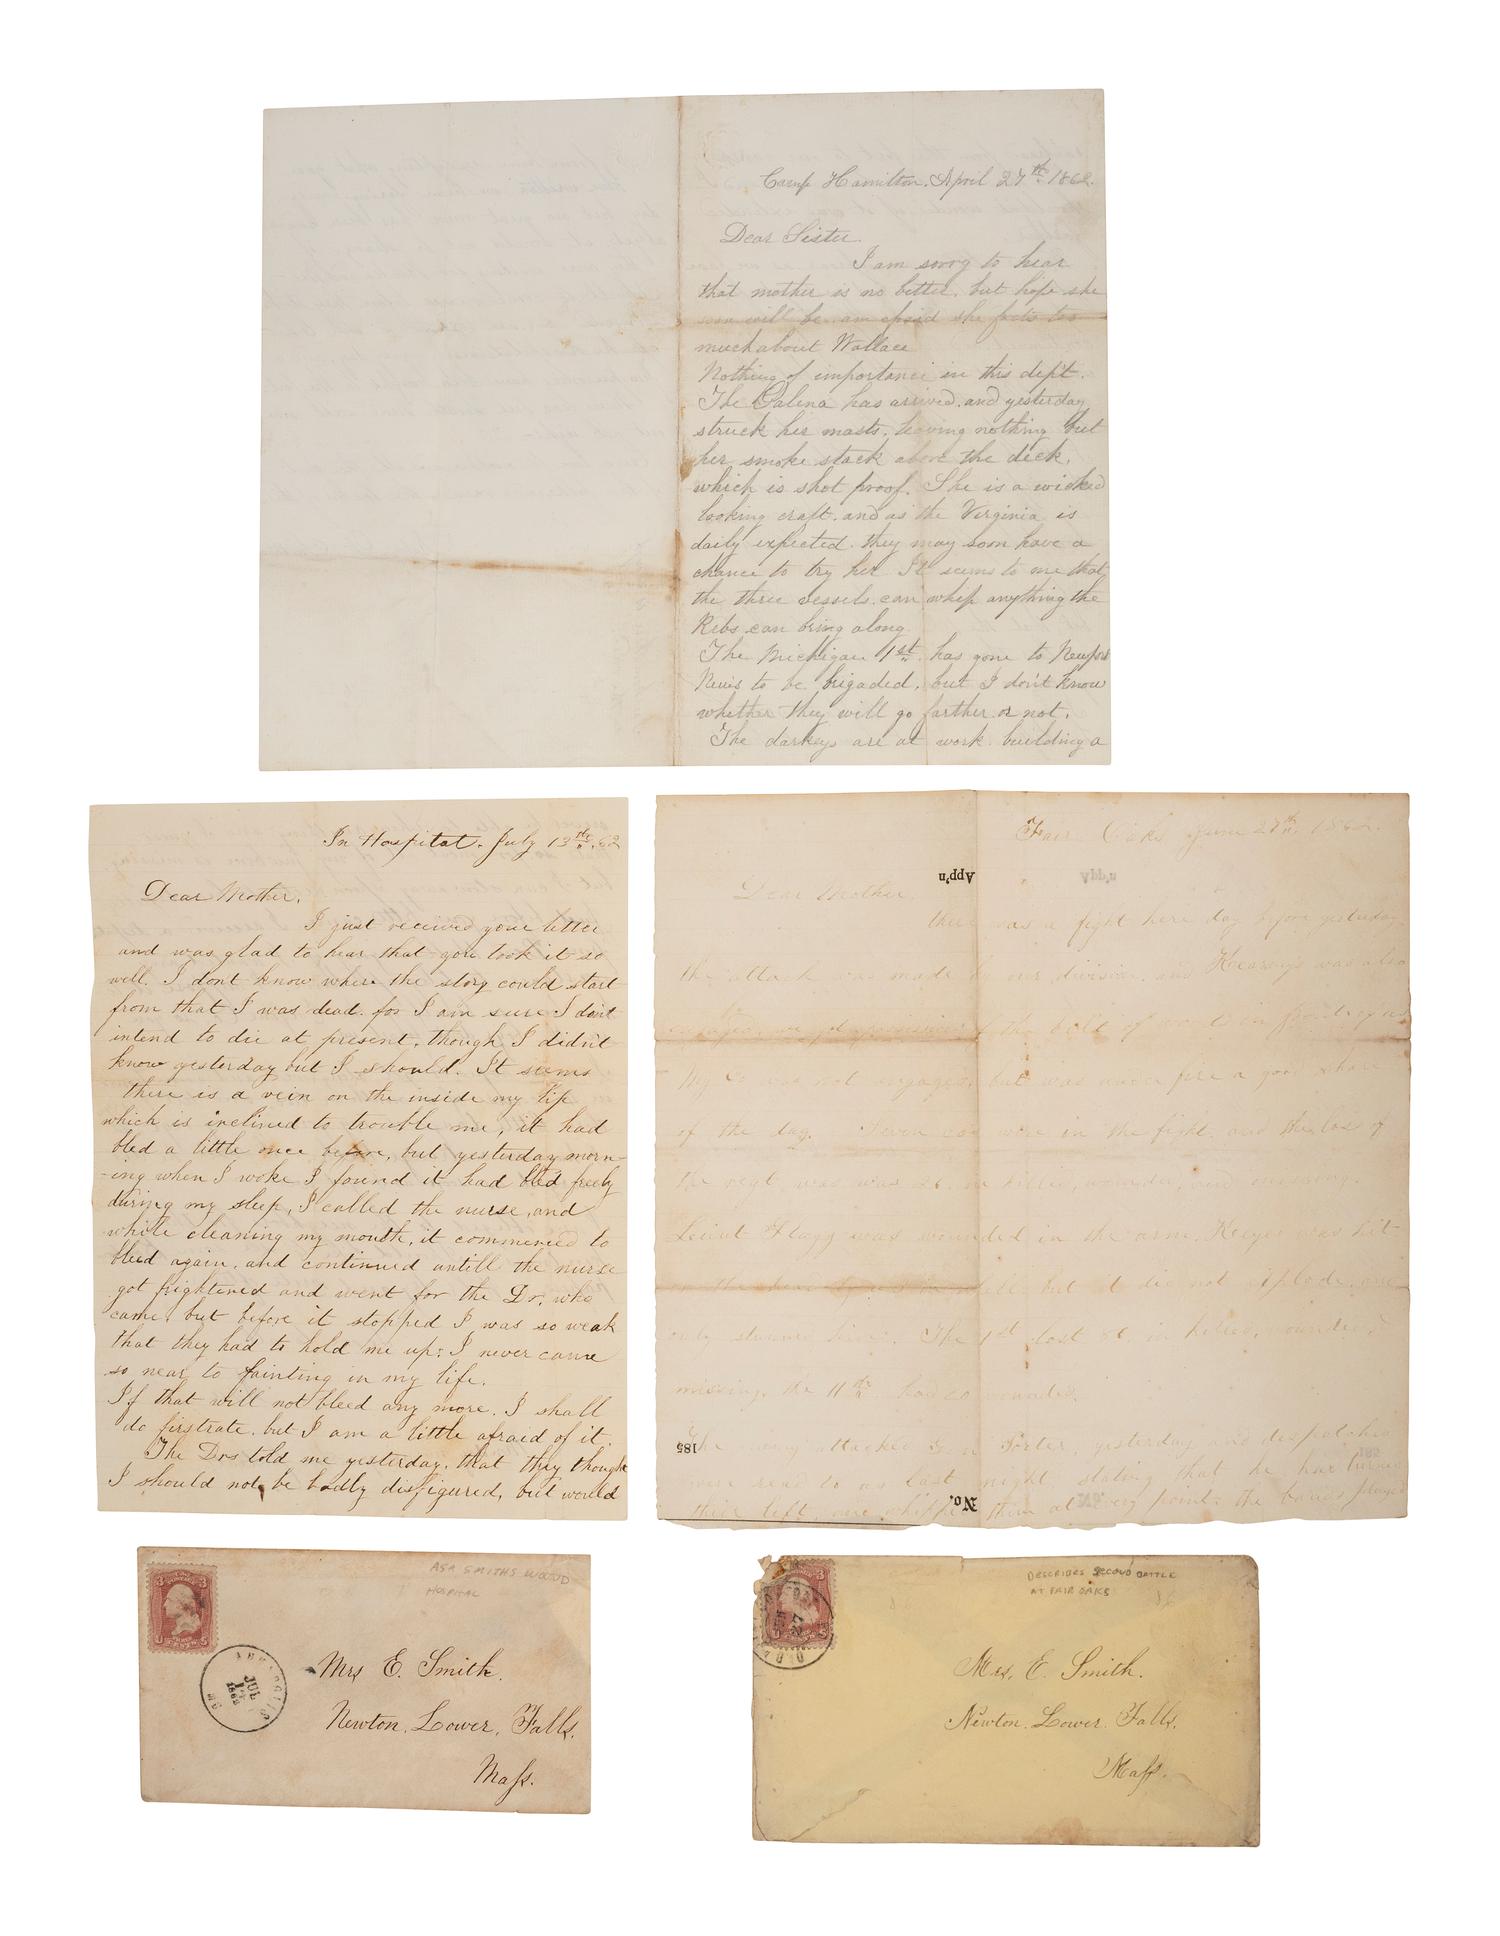 Camp Hamilton. April 27th 1862.
Dear Sister.
I am sorry to hear
that mother is no better. but hope she
soon will be. am afraid she frets too
much about Wallace
Nothing of importance in this dep't.
The Galena has arrived. and yesterday
struck her masts. leaving nothing but
her smoke stack above the deck.
which is shot proof. She is a wicked
looking craft. and as the Virginia is
daily expected. they may soon have a
chance to try her It seems to me that
the three vessels. can whip anything the
Rebs can bring along
The Michigan 1st. has gone to Newport
News to be brigaded. but I don't know
whether they will go farther or not.
The darkeys are at work building a
In Hospital. July 13th. 62
Dear Mother.
I just received your letter
and was glad to hear that you took it so
well. I don't know where the story could start
from that I was dead. for I am sure I don't
intend to die at present. though I didn't
know yesterday but I should. It seems
there is a vein on the inside my lip
which is inclined to trouble me, it had
bled a little once before, but yesterday morn-
-ing when I woke I found it had bled freely
during my sleep, I called the nurse, and
while cleaning my mouth, it commenced to
bleed again. and continued untill the nurse
got frightened and went for the Dr. who
came. but before it stopped I was so weak
that they had to hold me up: I never came
so near to fainting in my life.
If that will not bleed any more. I shall
do firstrate. but I am a little afraid of it.
The Drs told me yesterday. that they thought
I should not be badly disfigured, but would
Fair Oaks June 27th. 1862.
App'n
Dear Mother.
there was a fight here day before yesterday.
the attack was made by our division. and Kearney's was also
My Co was not engaged. but was under fire a good share
of the day. Seven cos were in the fight. and the loss of
the regt. was 26 in killed, wounded, and missing.
Lieut Flagg was wounded in the arm. Keeyes was hit
but it did not explode. and
only stunned The 1st lost 86 in killed, wounded
missing. the 11th had 20 wounded.
185
The enemy attacked Gen Porter, yesterday and despatches
were read to us last night stating that he had turned
No.
their left, and whipped them at every point. the bands played
ASA SMITHS WOUND
HOSPITAL
3 3
ANNAPOLIS
JUL
1862
MD
Mrs E. Smith.
Newton. Lower. Falls.
Mass.
DESCRIBES SECOND BATTLE
AT FAIR OAKS
JUN
27
Mrs. E. Smith.
Newton. Lower. Falls.
Mass.